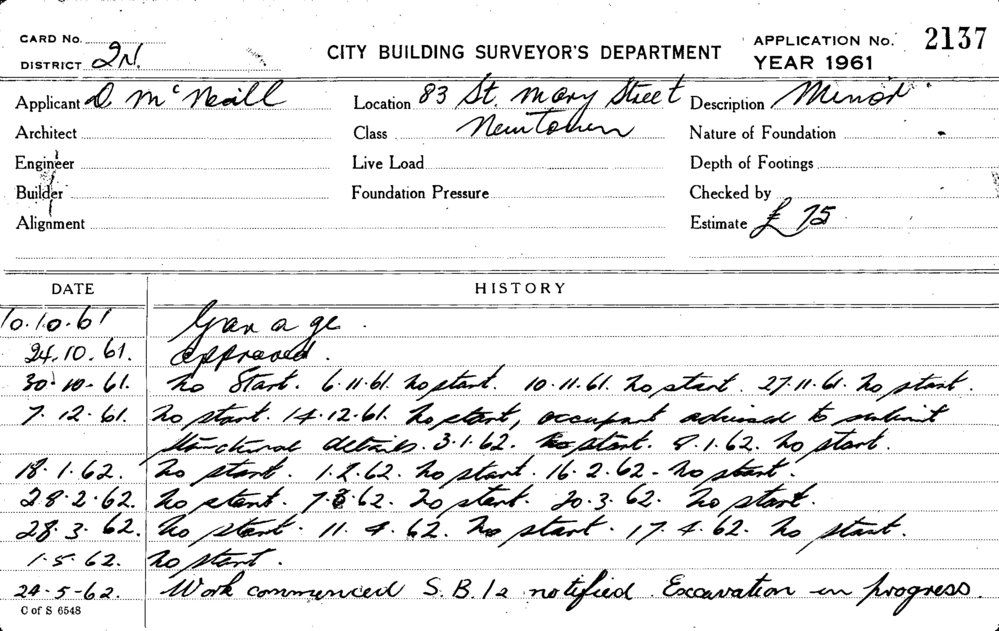 CARD No.
DISTRICT 2N.
CITY BUILDING SURVEYOR'S DEPARTMENT
APPLICATION No. 2137
YEAR 1961
Applicant D McNeill Location 83 St. Mary Street Description Minor
Architect Class Newtown Nature of Foundation
Engineer Live Load Depth of Footings
Builder Foundation Pressure Checked by
Alignment Estimate £ 75
DATE HISTORY
10.10.61 Garage.
24.10.61. approved.
30.10.61. No Start. 6.11.61. No start. 10.11.61. No start. 27.11.61. No start.
7.12.61. No start. 14.12.61. No start, occupant advised to submit
structural details. 3.1.62. No start. 8.1.62. No start.
18.1.62. No start. 1.2.62. No start. 16.2.62. No start.
28.2.62. No start. 7.3.62. No start. 20.3.62. No start.
28.3.62. No start. 11.4.62. No start. 17.4.62. No start.
1.5.62. No start.
24.5.62. Work commenced S.B.12 notified. Excavation in progress.
C of S 6548